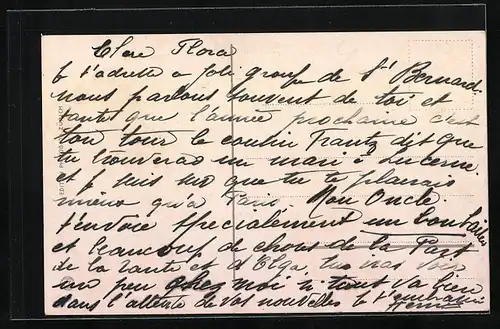 Chere Flora
je t'adresse ce joli groupe de St Bernard.
nous parlons souvent de toi et
tante que l'année prochaine c'est
ton tour le cousin Frantz dit que
tu trouveras un mari à Lucerne.
et je suis sur que tu te plairais
mieux qu'a Paris. Mon Oncle.
t'envoie specialement un bon baiser
et beaucoup de choses de la Part
de la tante et d'Olga, tu vas voir
un peu chez moi si tout va bien
dans l'attente de vos nouvelles je t'embrasse